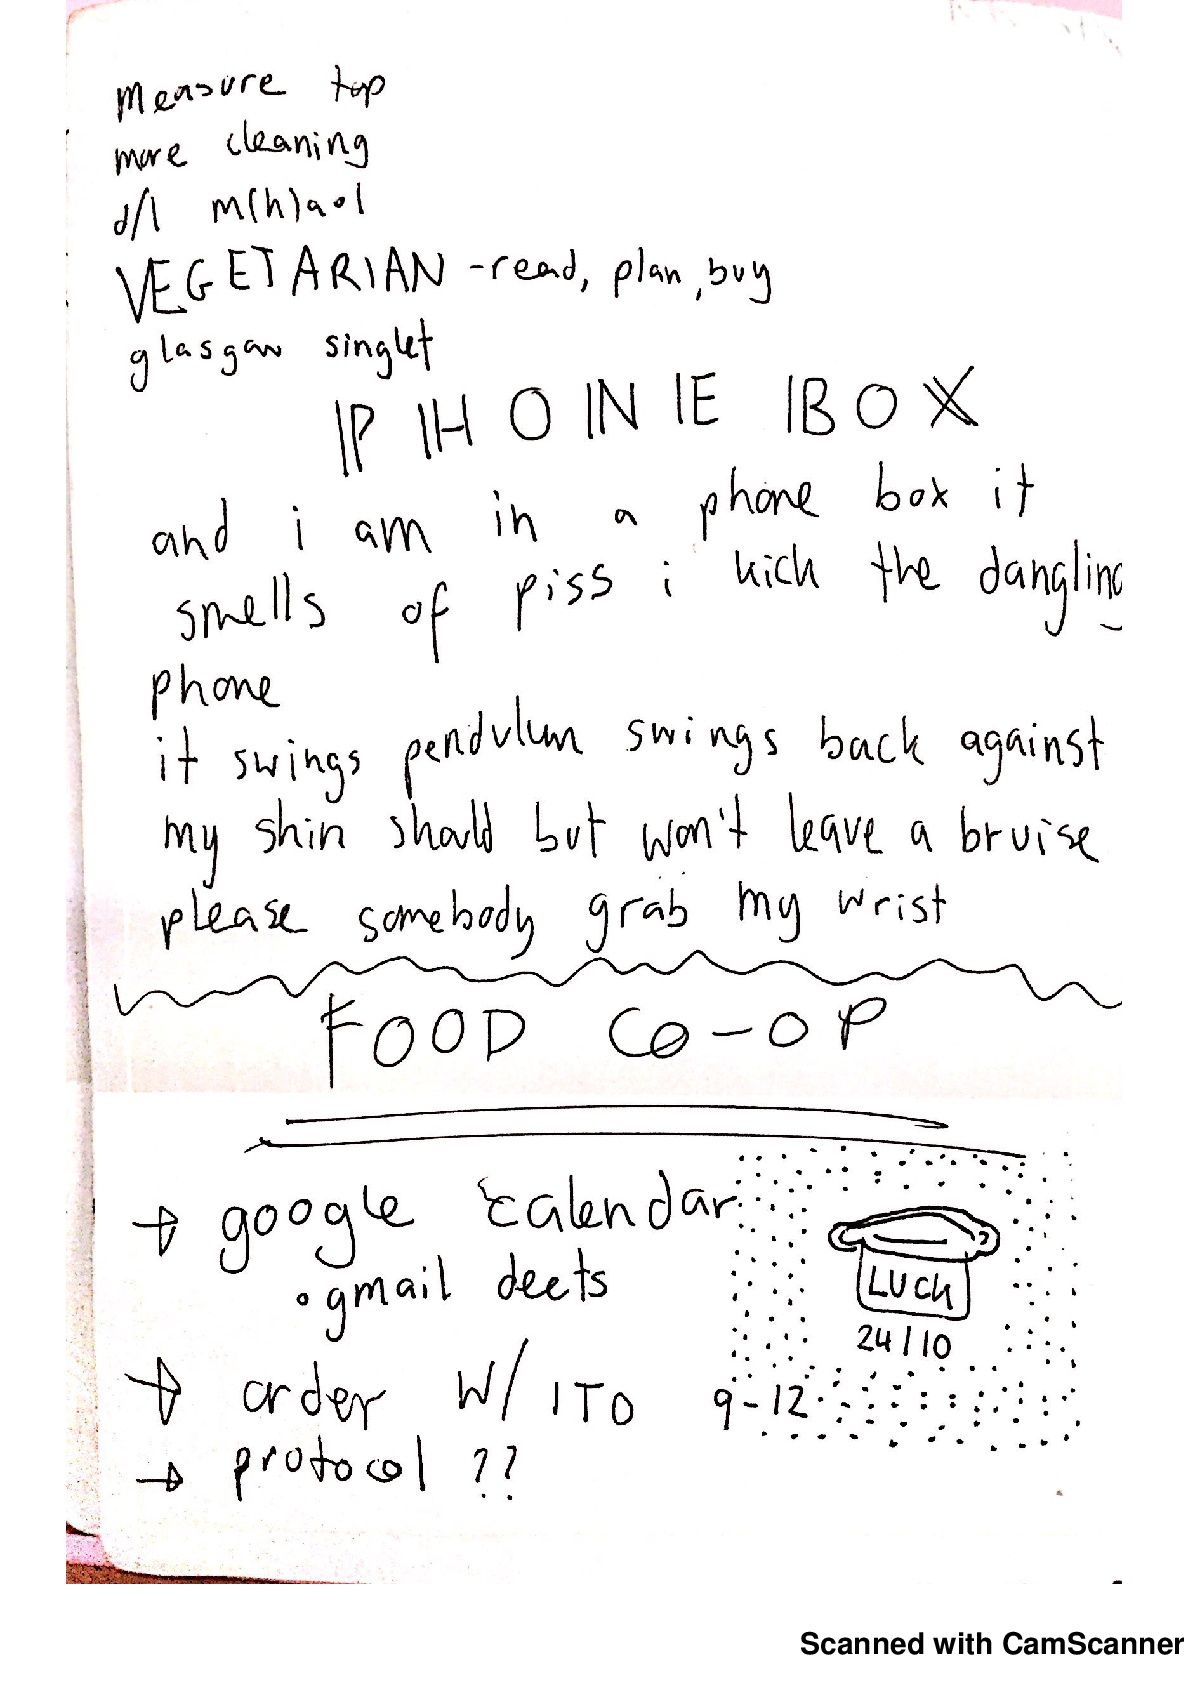 measure top
more cleaning
d/l m(h)aol
VEGETARIAN - read, plan, buy
glasgow singlet
PHONE BOX
and i am in a phone box it
smells of piss i kick the dangling
phone
it swings pendulum swings back against
my shin should but won't leave a bruise
please somebody grab my wrist
FOOD CO-OP
→ google calendar
• gmail deets
LUCK
24/10
→ order w/ ITO 9-12
→ protocol ??
Scanned with CamScanner